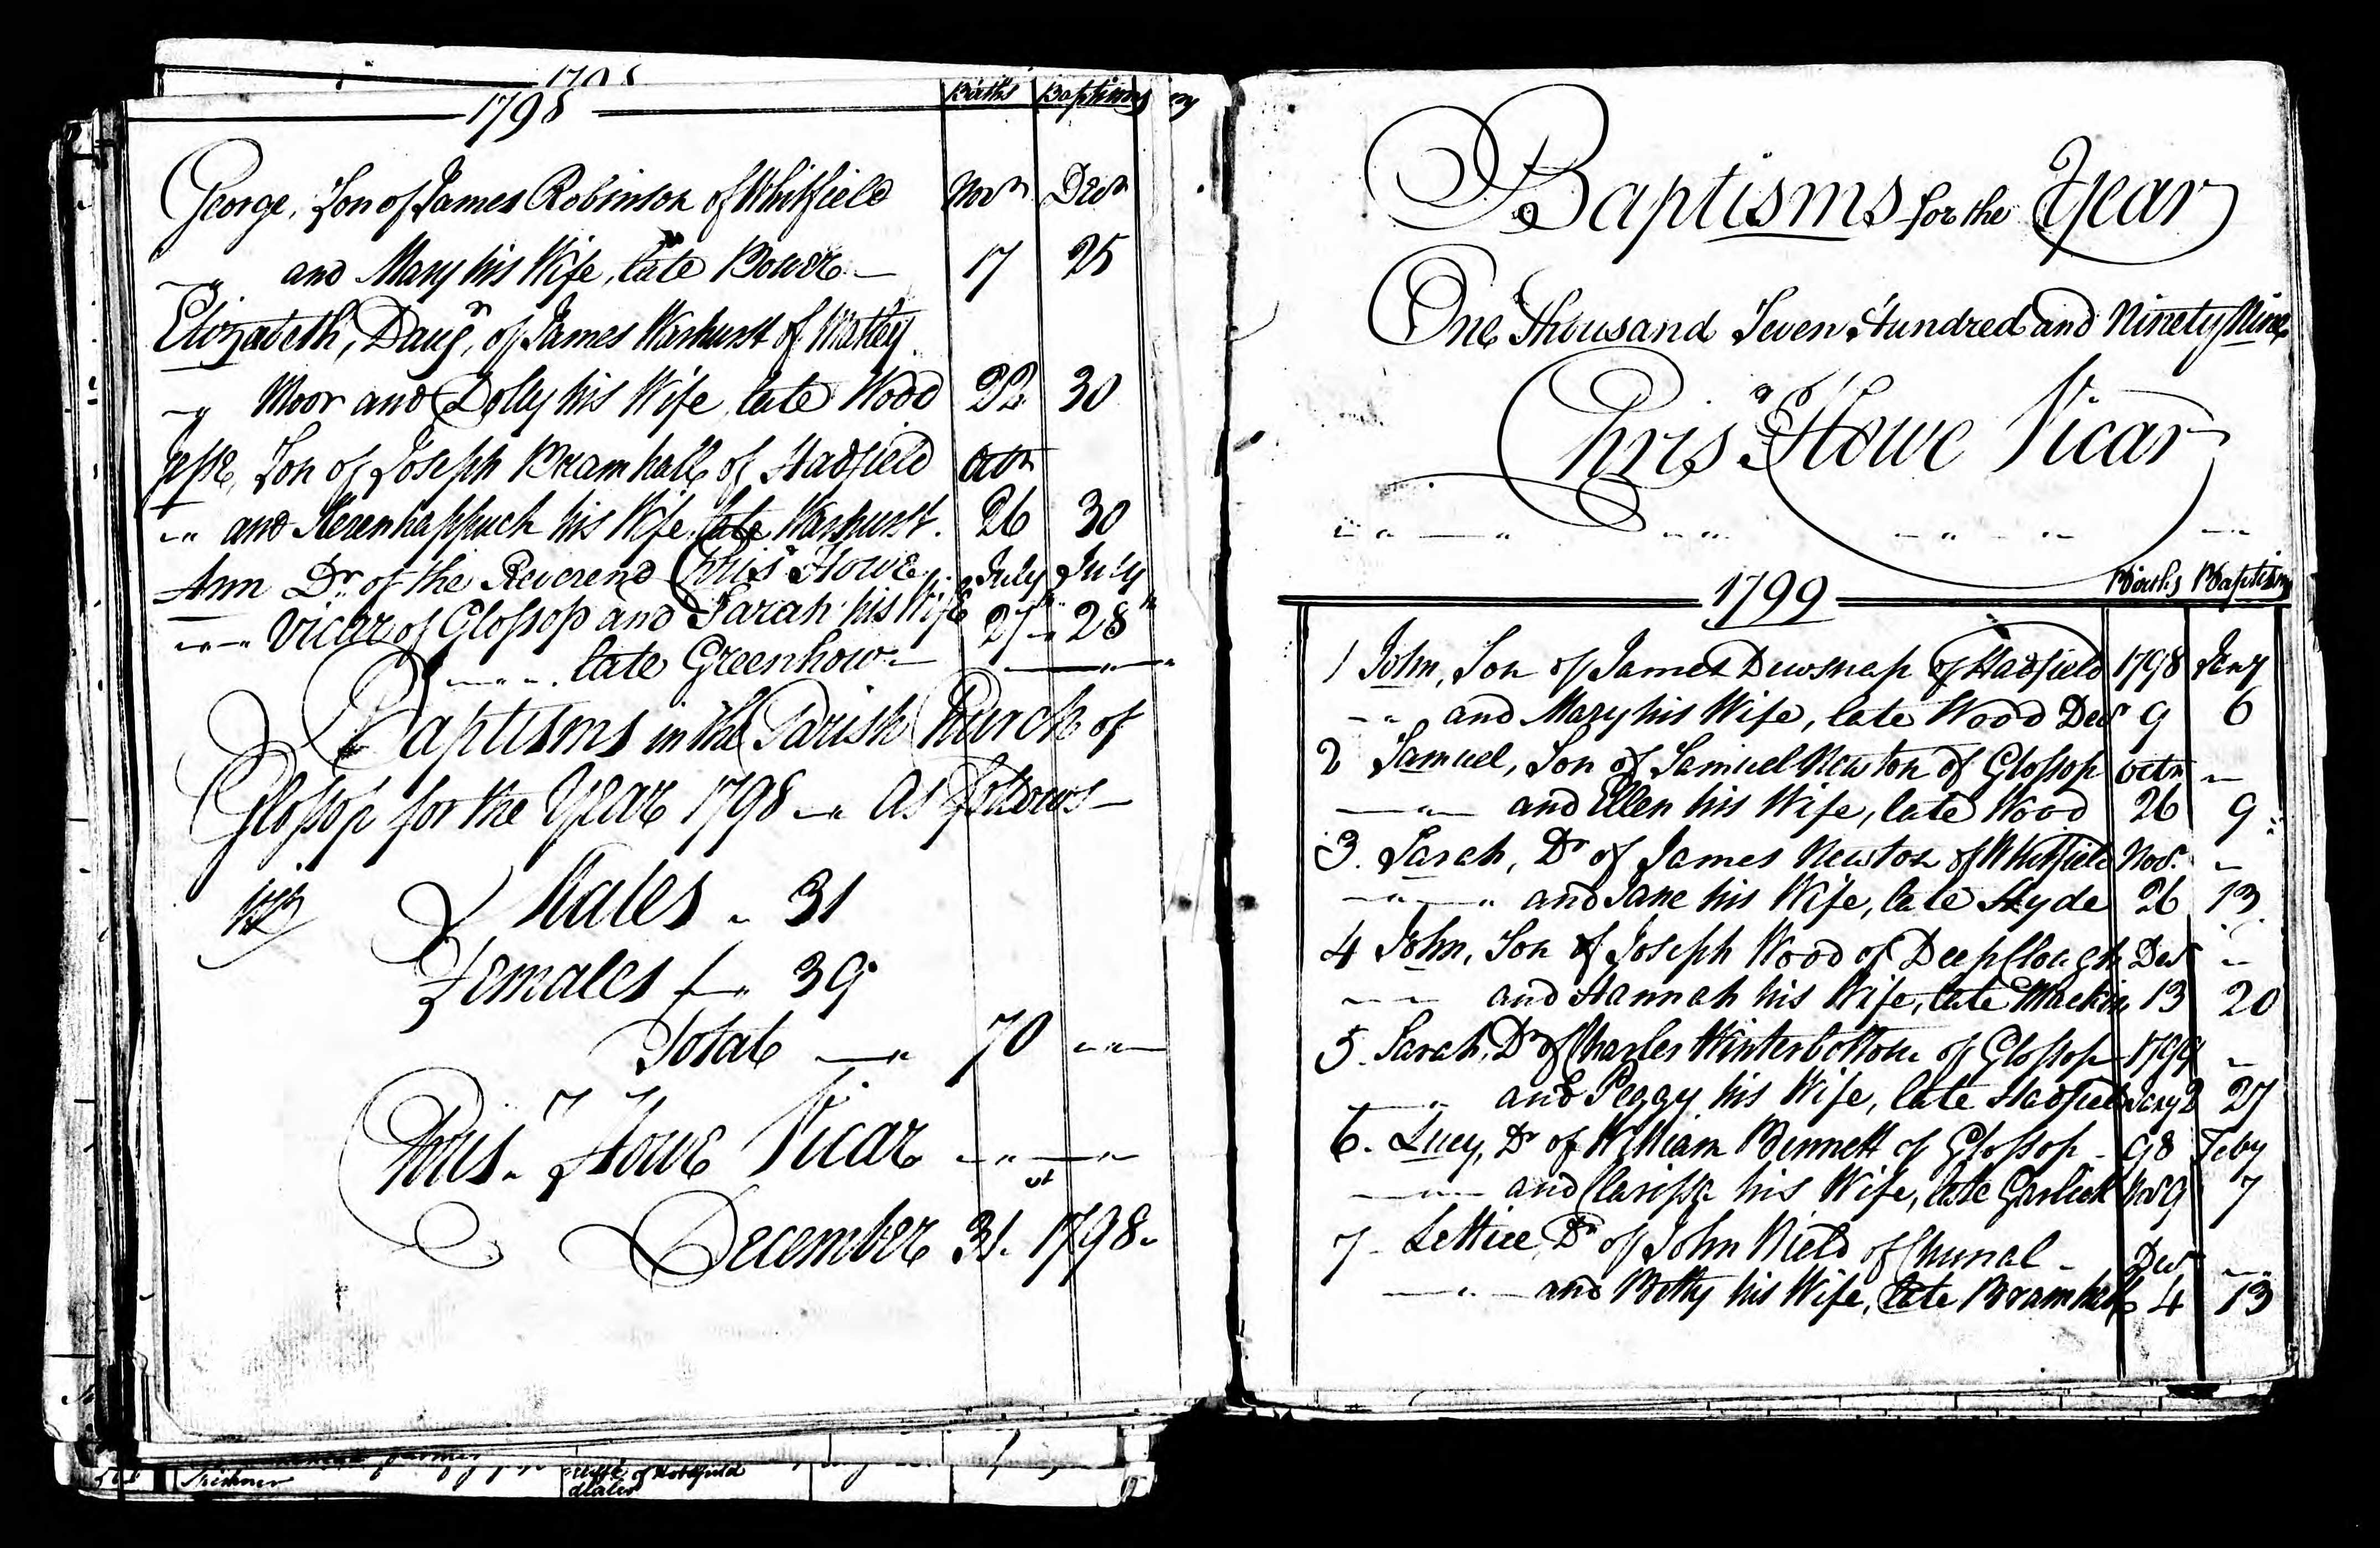 1798
Births Baptisms
George, Son of James Robinson of Whitfield Novr Decr
and Mary his Wife, late Bower 17 25
Elizabeth, Daugr, of James Warhurst of Matley
Moor and Dolly his Wife late Wood 22 30
Jesse, Son of Joseph Bramhall of Hadfield Octr
and Kerenhappuch his Wife, late Warhurst. 26 30
Ann Dr of the Reverend Chrisr Howe July July
Vicar of Glossop and Sarah his Wife 27th 28th
late Greenhow
Baptisms in the Parish Church of
Glossop for the Year 1798 As follows
Males 31
Females 39
Total 70
Chrisr Howe Vicar
December 31st 1798.
Baptisms for the Year
One Thousand Seven Hundred and Ninety Nine
Chrisr Howe Vicar
1799 Births Baptism
1 John, Son of James Dewsnap of Hadfield 1798 Jany
and Mary his Wife, late Wood Decr 9 6
2 Samuel, Son of Samuel Newton of Glossop Octr
and Ellen his Wife, late Wood 26 9
3. Sarah, Dr of James Newton of Whitfield Novr.
and Jane his Wife, late Hyde 26 13
4 John, Son of Joseph Wood of Deepclough Decr
and Hannah his Wife, late 13 20
5. Sarah, Dr of Charles Winterbottom of Glossop 1799
and Peggy his Wife, late Hadfield Jany 2 27
6. Lucy, Dr of William Bennett of Glossop 98 Feby
and Clarissa his Wife, late Garlick Novr 9 7
7 Lettice, Dr of John Nield of Chunal Decr
and Betty his Wife, late Bramhall 4 13